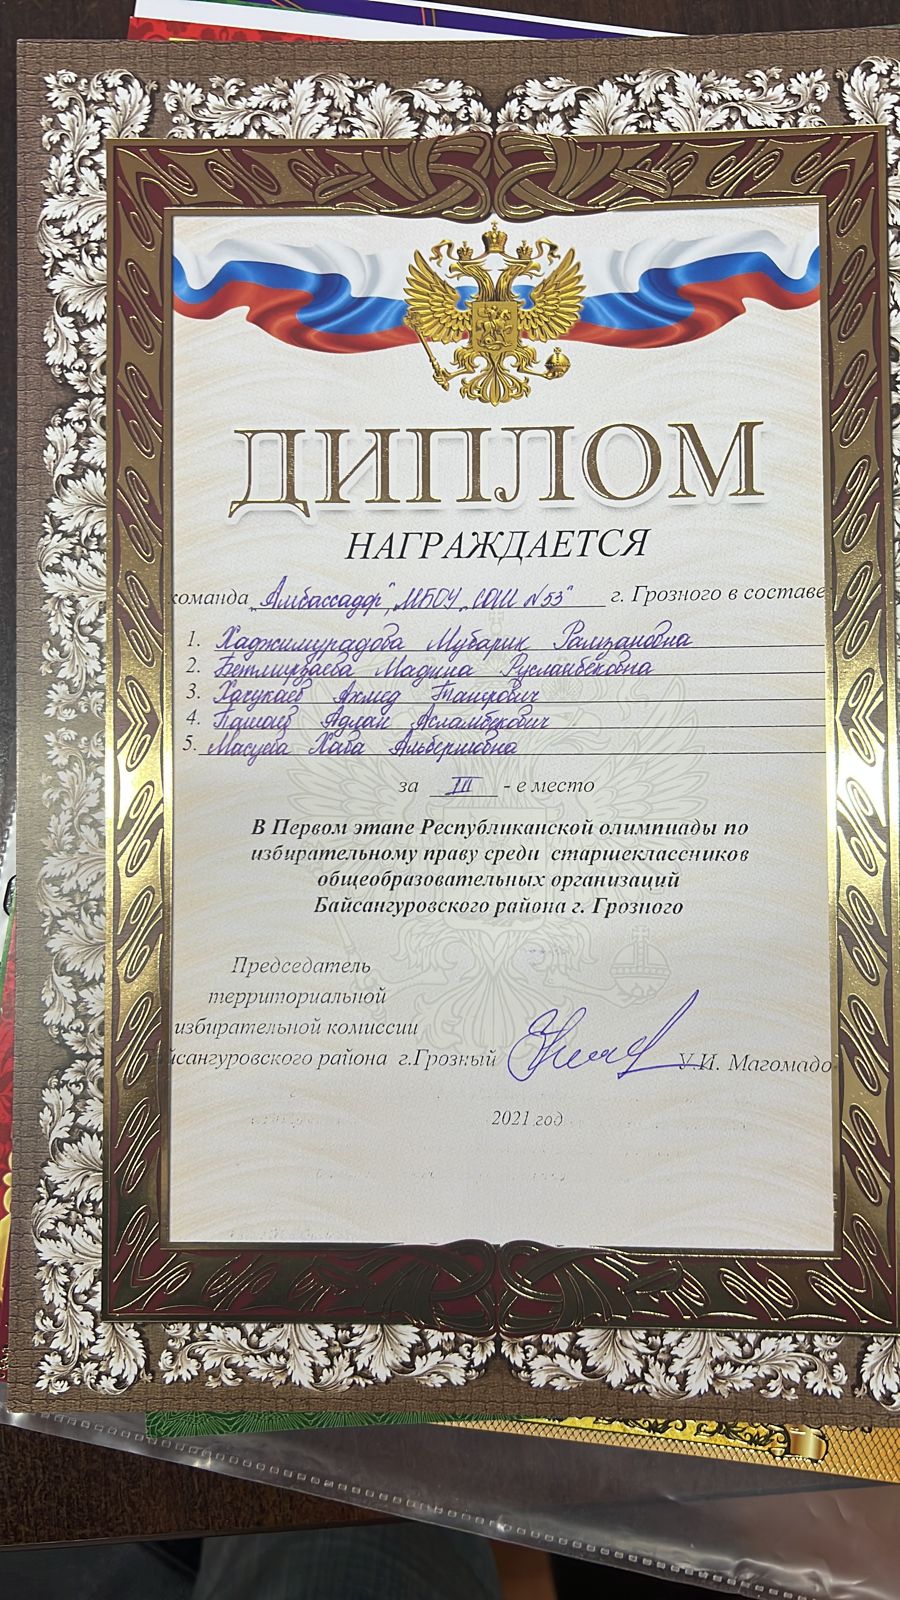 ДИПЛОМ
НАГРАЖДАЕТСЯ
команда „Амбассадор" МБОУ „СОШ №53" г. Грозного в составе
1. Хаджимурадова Мубарик Рамзановна
2. Бетмирзаева Мадина Русланбековна
3. Хучукаев Ахмед Таирович
4. Пашаев Адлан Асламбекович
5. Масуева Хава Альбертовна
за III - е место
В Первом этапе Республиканской олимпиады по
избирательному праву среди старшеклассников
общеобразовательных организаций
Байсангуровского района г. Грозного
Председатель
территориальной
избирательной комиссии
айсангуровского района г.Грозный У.И. Магомадо
2021 год